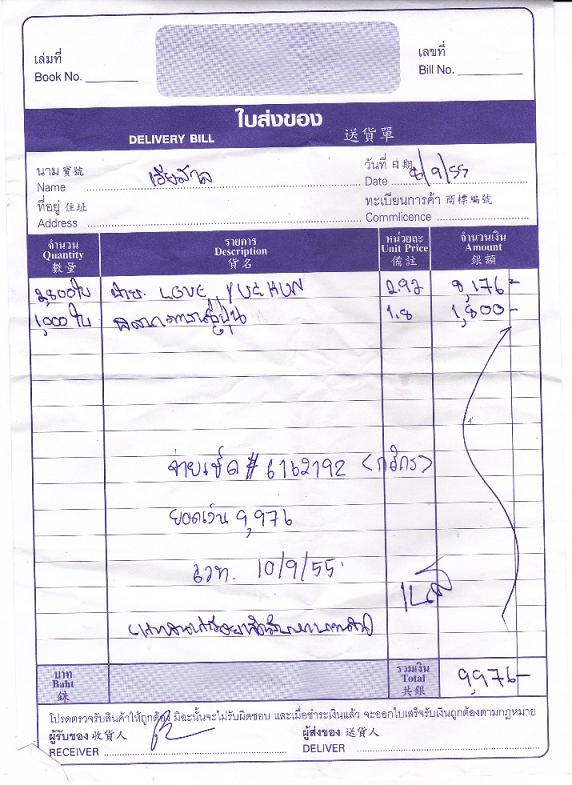 เล่มที่ เลขที่
Book No. Bill No.
ใบส่งของ
DELIVERY BILL 送貨單
นาม 寶號 วันที่ 日期
Name Date 8/9/55
ที่อยู่ 住址 ทะเบียนการค้า 商標編號
Address Commlicence
จำนวน รายการ หน่วยละ จำนวนเงิน
Quantity Description Unit Price Amount
數量 貨名 備註 銀額
2,800 ใบ LOVE YUCHUN 2.92 8,176-
1,000 ใบ 1.8 1,800-
จ่ายเช็ค # 6162192 (กสิกร)
ยอดเงิน 9,976
10/9/55
บาท รวมเงิน
Baht Total 9,976-
銖 共銀
โปรดตรวจรับสินค้าให้ถูกต้อง มิฉะนั้นจะไม่รับผิดชอบ และเมื่อชำระเงินแล้ว จะออกใบเสร็จรับเงินถูกต้องตามกฎหมาย
ผู้รับของ 收貨人 ผู้ส่งของ 送貨人
RECEIVER DELIVER